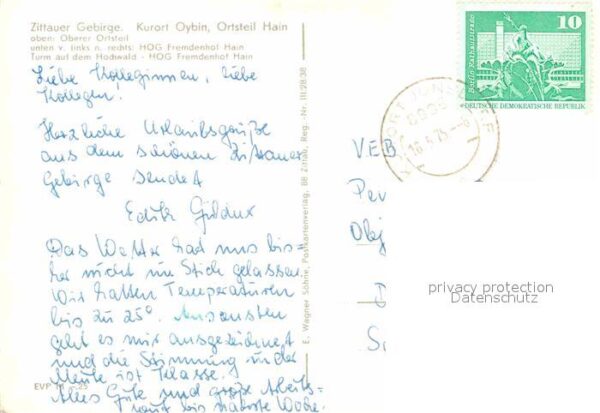 Zittauer Gebirge. Kurort Oybin, Ortsteil Hain
oben: Oberer Ortsteil
unten v. links n. rechts: HOG Fremdenhof Hain
Turm auf dem Hochwald - HOG Fremdenhof Hain
Liebe Kolleginnen, liebe
Kollegen.
Herzliche Urlaubsgrüße
aus dem schönen Zittauer
Gebirge sendet
Edith
Das Wetter hat uns bis-
her nicht im Stich gelassen
Wir hatten Temperaturen
bis zu 25°. Ansonsten
geht es mir ausgezeichnet
und die Stimmung in der
Meute ist Klasse.
Alles Gute und große Arbeits-
bis nächste Woche.
EVP M -,25
E. Wagner Söhne, Postkartenverlag, 88 Zittau, Reg.-Nr. III/28/38
10
Berlin-Rathausstraße
DEUTSCHE DEMOKRATISCHE REPUBLIK
KURORT JONSDORF
VEB
Obj
privacy protection
Datenschutz